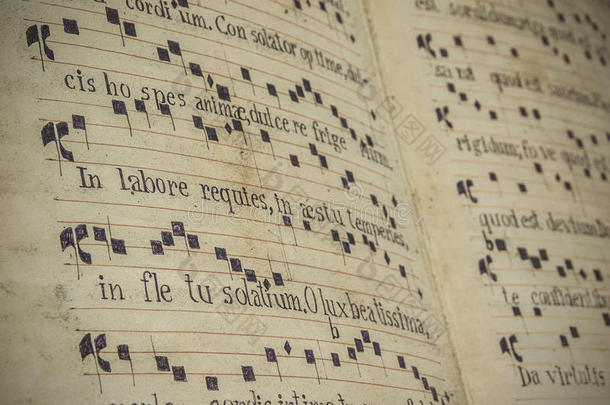 cordium. Con solator optime, dul
cis ho spes animæ, dulce re frige rium.
In labore requies, in æstu temperies,
in fle tu solatium, O lux beatissima,
sordidum, riga quod est
sa na quod est saucium.
rigidum; fo ve quod
quod est devium. Da
te confidentib
Da virtutis